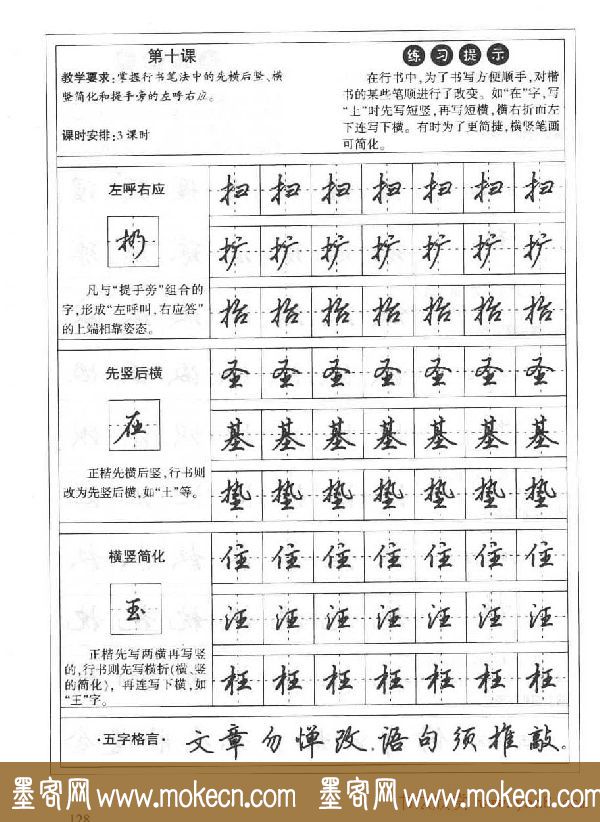 第十课
教学要求:掌握行书笔法中的先横后竖、横
竖简化和提手旁的左呼右应。
课时安排:3课时
练习提示
在行书中,为了书写方便顺手,对楷
书的某些笔顺进行了改变。如“在”字,写
“土”时先写短竖,再写短横,横右折而左
下连写下横。有时为了更简捷,横竖笔画
可简化。
左呼右应
扔
凡与“提手旁”组合的
字,形成“左呼叫,右应答”
的上端相靠姿态。
扫扫扫扫扫扫扫
扩扩扩扩扩扩扩
括括括括括括括
先竖后横
在
正楷先横后竖,行书则
改为先竖后横,如“土”等。
圣圣圣圣圣圣圣
基基基基基基基
垫垫垫垫垫垫垫
横竖简化
玉
正楷先写两横再写竖
的,行书则先写横折(横、竖
的简化),再连写下横,如
“王”字。
住住住住住住住
汪汪汪汪汪汪汪
枉枉枉枉枉枉枉
·五字格言· 文章勿惮改,语句须推敲。
墨客网 www.mokecn.com 墨客网 www.mokecn.com
128